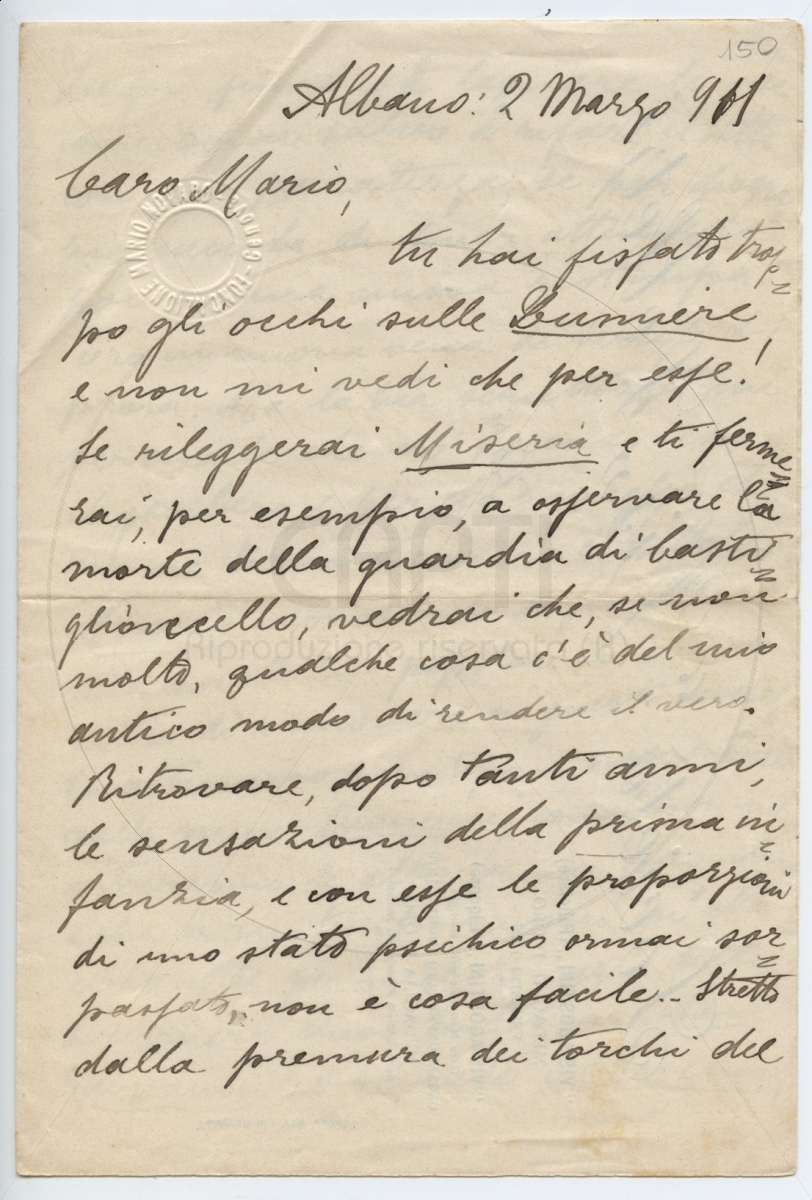 150
Albano: 2 Marzo 911
Caro Mario,
tu hai fissato trop=
po gli occhi sulle Lumiere,
e non mi vedi che per esse!
Se rileggerai Miseria e ti ferme=
rai, per esempio, a osservare la
morte della guardia di basti=
glioncello, vedrai che, se non
molto, qualche cosa c'è del mio
antico modo di rendere il vero.
Ritrovare, dopo tanti anni,
le sensazioni della prima in=
fanzia, e con esse le proporzioni
di uno stato psichico ormai sor=
passato, non è cosa facile.. Stretto
dalla premura dei torchi del
FONDAZIONE MARIO NOVARO GENOVA
Riproduzione riservata